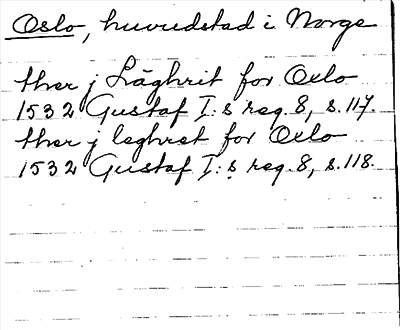 Oslo, huvudstad i Norge
ther j Läghrit for Oslo
1532 Gustaf I:s reg. 8, s. 117.
ther j leghret for Oslo
1532 Gustaf I:s reg. 8, s. 118.